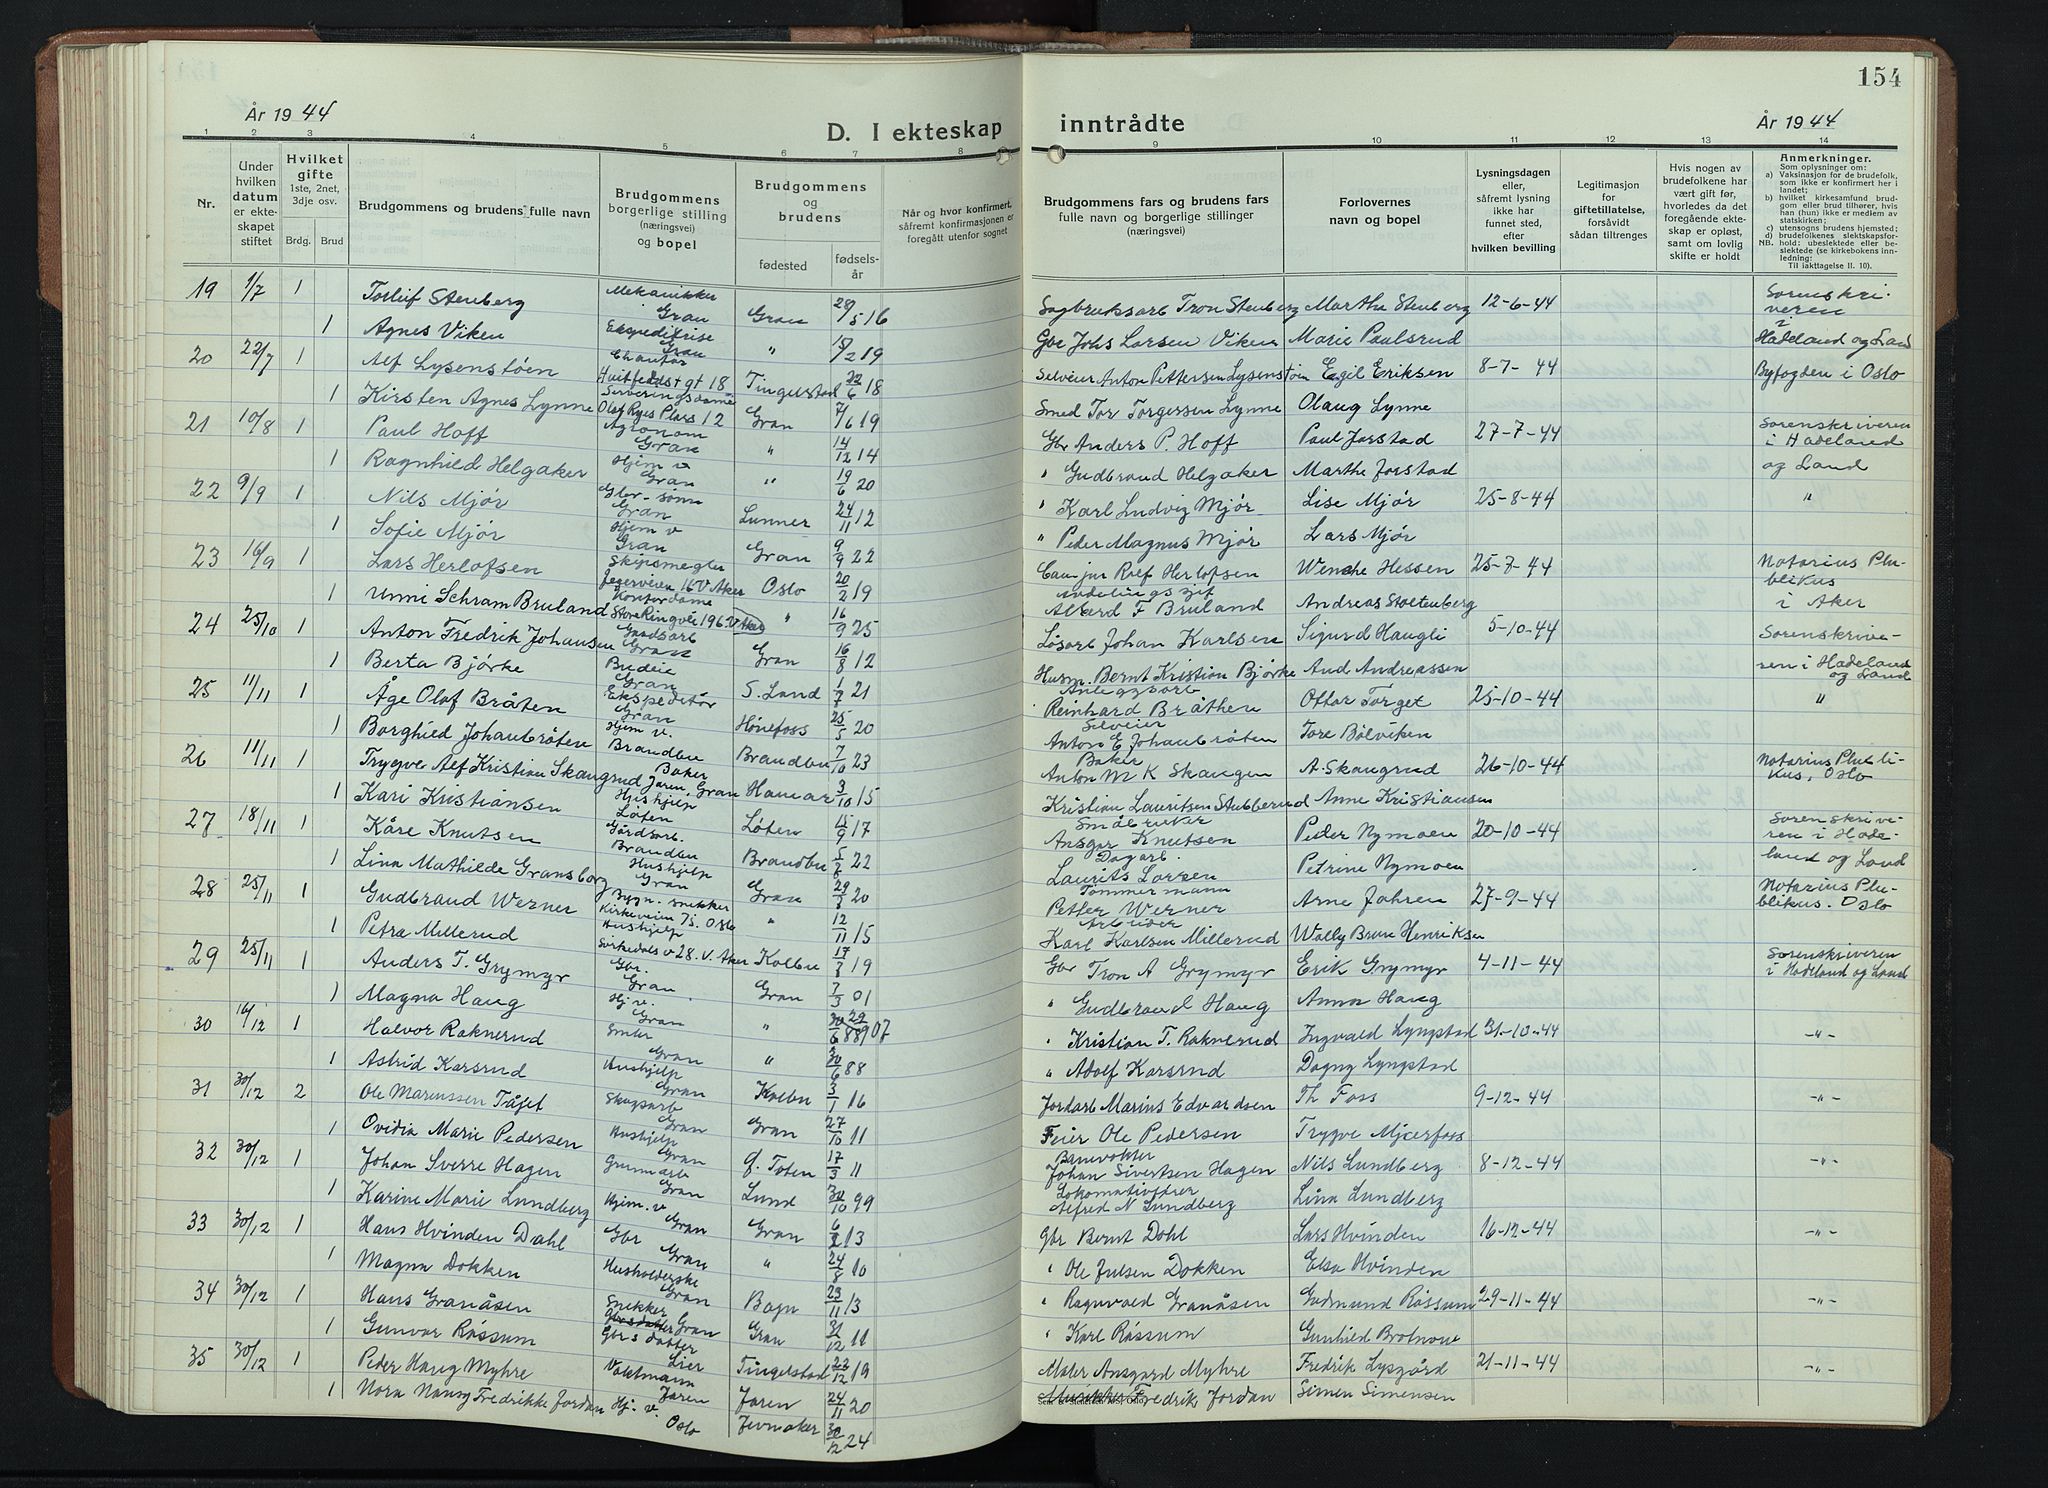 154
År 1944
År 1944
D. I ekteskap inntrådte
1 2 3 4 5 6 7 8 9 10 11 12 13 14
Nr.
Under hvilken datum er ekteskapet stiftet
Hvilket gifte
1ste, 2net, 3dje osv.
Brdg. Brud
Brudgommens og brudens fulle navn
Brudgommens borgerlige stilling (næringsvei) og bopel
Brudgommens og brudens
fødested
fødselsår
Når og hvor konfirmert, såfremt konfirmasjonen er foregått utenfor sognet
Brudgommens fars og brudens fars fulle navn og borgerlige stillinger (næringsvei)
Forlovernes navn og bopel
Lysningsdagen eller, såfremt lysning ikke har funnet sted, efter hvilken bevilling
Legitimasjon for giftetillatelse, forsåvidt sådan tiltrenges
Hvis nogen av brudefolkene har vært gift før, hvorledes da det foregående ekteskap er opløst, samt om lovlig skifte er holdt
Anmerkninger.
Som oplysninger om:
a) Vaksinasjon for de brudefolk, som ikke er konfirmert her i landet;
b) hvilket kirkesamfund brudgom eller brud tilhører, hvis han (hun) ikke er medlem av statskirken;
c) utensogns brudens hjemsted;
d) brudefolkenes slektskapsforhold: ubeslektede eller beslektede (se kirkebokens innledning:
NB. Til iakttagelse II. 10).
19 1/7 1 Torleif Stenberg Mekanikker Gran Gran 28/5 16 Sagbruksarb Tron Stenberg Marthe Stenberg 12-6-44 Sorenskriveren i Hadeland og Land
1 Agnes Viken Ekspeditrise Gran " 15/2 19 Gbr Johs Larsen Viken Marie Paulsrud
20 22/7 1 Alf Lysenstøen Chaufør Hvitfeldst gt 18 Tingelstad 22/6 18 Selveier Anton Pettersen Lysenstøen Egil Eriksen 8-7-44 Byfogden i Oslo
1 Kirsten Agnes Lynne Serveringsdame Olaf Ryes Plass 12 Gran 7/6 19 Smed Tor Torgersen Lynne Olaug Lynne
21 10/8 1 Paul Hoff Agronom Gran " 14/12 14 Gbr Anders P. Hoff Paul Jorstad 27-7-44 Sorenskriveren i Hadeland og Land
1 Ragnhild Helgaker Hjem v Gran " 19/6 20 " Gudbrand Helgaker Marthe Jorstad
22 9/9 1 Nils Mjør Gbr-sønn Gran Lunner 24/11 12 " Karl Ludvig Mjør Lise Mjør 25-8-44 "
1 Sofie Mjør Hjem v Gran Gran 9/9 22 " Peder Magnus Mjør Lars Mjør
23 16/9 1 Lars Herlofsen Skipsmegler Jegerveien 16 V Aker Oslo 20/2 19 Rolf Herlofsen Wenche Hessen 25-7-44 Notarius Publikus i Aker
1 Unni Schram Bruland Kontordame Store Ringvei 196 V Aker " 16/9 25 F Bruland Andreas Stoltenberg
24 25/10 1 Anton Fredrik Johansen Gårdsarb Gran Gran 16/8 12 Løsarb Johan Karlsen Sigurd Haugli 5-10-44 Sorenskriveren i Hadeland og Land
1 Berta Bjørke Budeie Gran S. Land 1/7 21 Husm. Bernt Kristian Bjørke Aud Andreassen
25 11/11 1 Åge Olaf Bråten Ekspeditør Gran Hønefoss 25/5 20 Anleggsarb Reinhard Bråthen Ottar Torget 25-10-44 "
1 Borghild Johansbråten Hjem v. Brandbu Brandbu 7/10 23 Selveier Anton E Johansbråten Tore Bølviken
26 11/11 1 Trygve Alf Kristian Skaugrud Baker Jaren, Gran Hamar 3/10 15 Baker Anton M K Skaugen A. Skaugrud 26-10-44 Notarius Publikus, Oslo
1 Kari Kristiansen Hushjelp Løten Løten 15/9 17 Kristian Lauritsen Stubberud Anne Kristiansen
27 18/11 1 Kåre Knutsen Gårdsarb. Brandbu Brandbu 22 Småbruker Ansgar Knutsen Peder Nymoen 20-10-44 Sorenskriveren i Hadeland og Land
1 Lina Mathilde Gransborg Hushjelp Gran Gran 29/8 20 Dagarb. Laurits Larsen Petrine Nymoen
28 25/11 1 Gudbrand Werner Bygn. snekker Kirkeveien 7 i. Oslo " 12/11 15 Tømmermann Petter Werner Arne Jahren 27-9-44 Notarius Publikus. Oslo
1 Petra Millerud Hushjelp Sørkedals v 28. V. Aker Kolbu 17/3 19 Arbeider Karl Karlsen Millerud Wally Brun Henriksen
29 25/11 1 Anders T. Grymyr Gbr. Gran Gran 7/3 01 Gbr Tron A Grymyr Erik Grymyr 4-11-44 Sorenskriveren i Hadeland og Land
1 Magna Haug Hj v. Gran " 29/9 07 " Gudbrand Haug Anna Haug
30 16/12 1 Halvor Raknerud Smed Gran " 30/6 88 " Kristian T. Raknerud Ingvald Lyngstad 31-10-44 -"-
1 Astrid Karsrud Hushjelp Gran Kolbu 3/1 16 " Adolf Karsrud Dagny Lyngstad
31 30/12 2 Ole Marenssen Tåjet Skogsarb Gran Gran 27/10 11 Jordarb Marius Edvardsen Th Foss 9-12-44 -"-
1 Ovidia Marie Pedersen Hushjelp Gran Ø. Toten 17/3 11 Feier Ole Pedersen Trygve Mjørfoss
32 30/12 1 Johan Sverre Hagen Grunnarb Gran Lund 30/10 99 Banevokter Johan Sivertsen Hagen Nils Lundberg 8-12-44 -"-
1 Karine Marie Lundberg Hjem. v Gran Gran 6/2 13 Lokomotivfører Alfred N Lundberg Lina Lundberg
33 30/12 1 Hans Hvinden Dahl Gbr Gran " 24/8 10 Gbr Bernt Dahl Lars Hvinden 16-12-44 -"-
1 Magna Dokken Husholderske Gran Bagn 23/11 13 " Ole Julsen Dokken Elsa Hvinden
34 30/12 1 Hans Granåsen Snekker Gran Gran 31/12 11 " Ragnvald Granåsen Gudmund Råssum 29-11-44 -"-
1 Gunvor Råssum Gbrs datter Lier Tingelstad 22/12 19 " Karl Råssum Gunhild Brolnove
35 30/12 1 Peder Haug Myhre Vaktmann Jaren Jaren 24/11 20 Maler Ansgard Myhre Fredrik Lysgård 21-11-44 -"-
1 Nora Nansy Fredrikke Jordan Hj. v. Oslo Jevnaker 30/12 24 Fredrik Jordan Simen Simensen